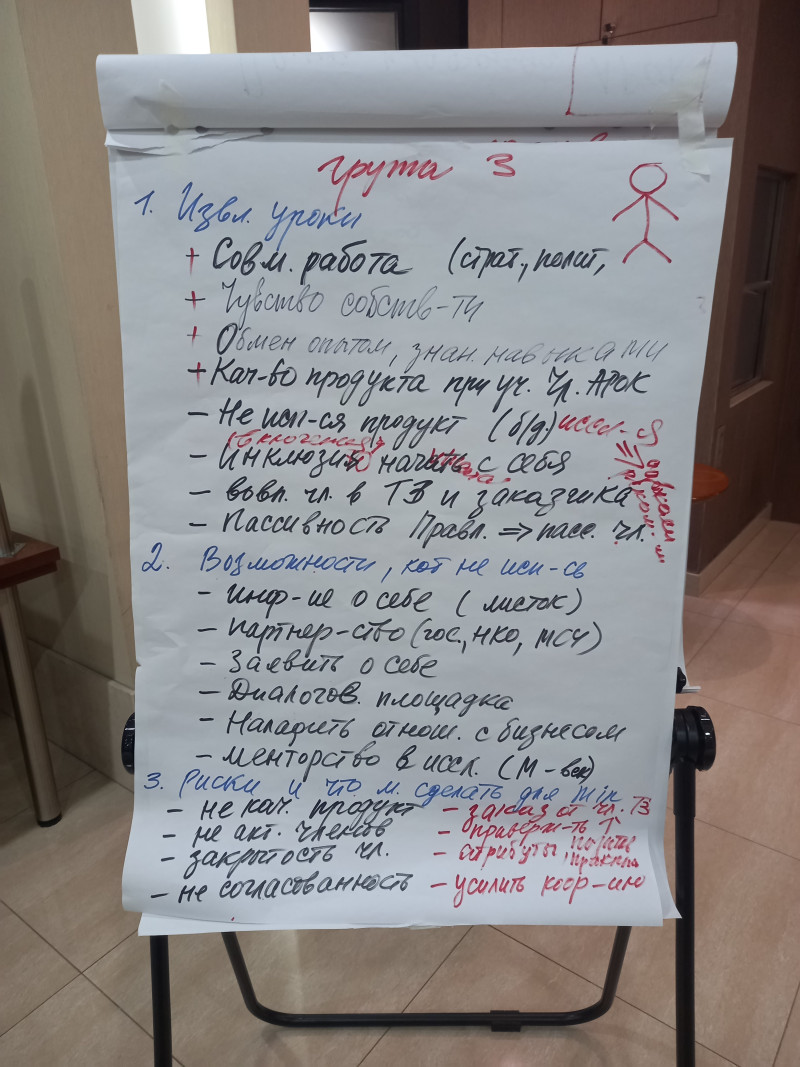 группа 3
1. Извл. уроки
+ Совм. работа (страт., полит,
+ Чувство собств-ти
+ Обмен опытом, знан. навыками
+ Кач-во продукта при уч. Чл. АРОК
- Не исп-ся продукт (б/д) иссл-я
(включения)
- Инклюзия начать с себя
- вовл. чл. в ТЗ и заказчика
- Пассивность Правл. => пасс. чл.
2. Возможности, кот не исп-сь
- Инф-ие о себе (листок)
- Партнер-ство (гос., НКО, МСЧ)
- Заявить о себе
- Диалогов. площадка
- Наладить отнош. с бизнесом
- Менторство в иссл. (М-век)
3. Риски и что м. сделать для min
- не кач. продукт - заказ от чл. ТЗ
- не акт. членств - приверж-ть ↑
- закрытость чл. - атрибуты,
- не согласованность - усилить коор-ию